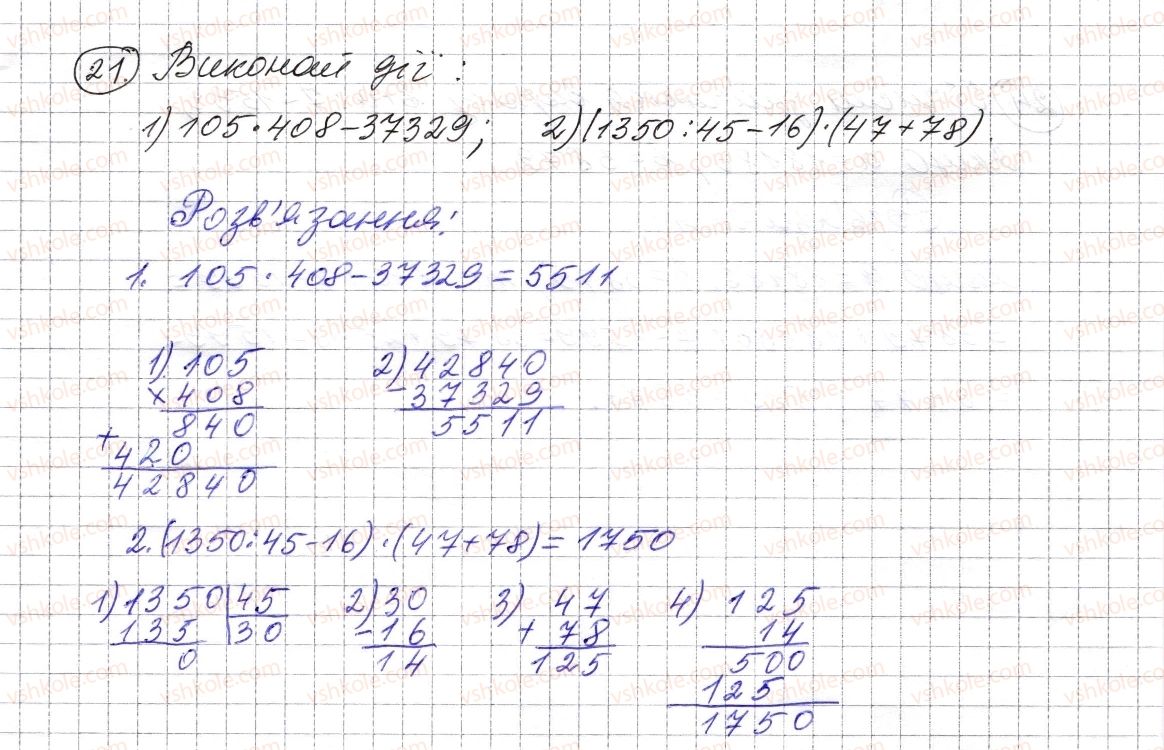 21. Виконай дії:
1) 105·408-37329; 2) (1350:45-16)·(47+78).
Розв'язання:
1. 105·408-37329=5511
1) 105
×408
840
+
420
42840
2) 42840
-37329
5511
2. (1350:45-16)·(47+78)=1750
1) 1350|45
135 30
0
2) 30
-16
14
3) 47
+78
125
4) 125
14
500
125
1750
vshkole.com